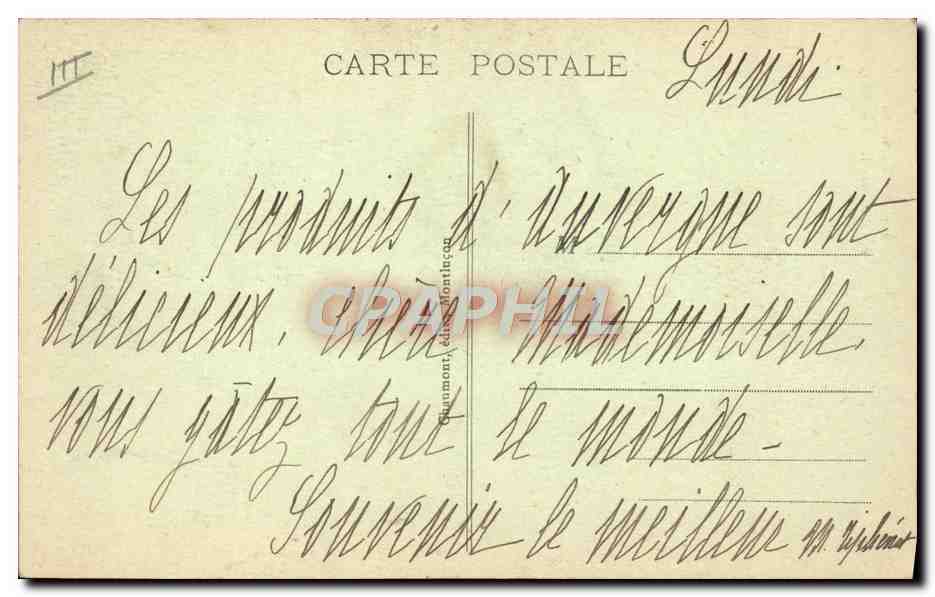 III
CARTE POSTALE
Lundi
Les produits d'Auvergne sont
délicieux, chère Mademoiselle,
vous gâtez tout le monde -
Souvenir le meilleur M.
Chaumont, édit., Montluçon
CPAPHIL